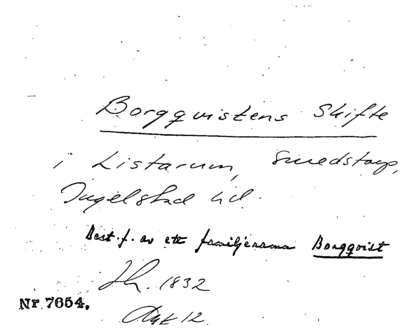 Borgqvistens Skifte
i Listarum, Smedstorp,
Ingelstad hd.
Best. f. av ett familjenamn Borgqvist
Sk. 1832
Akt 12
Nr 7654.